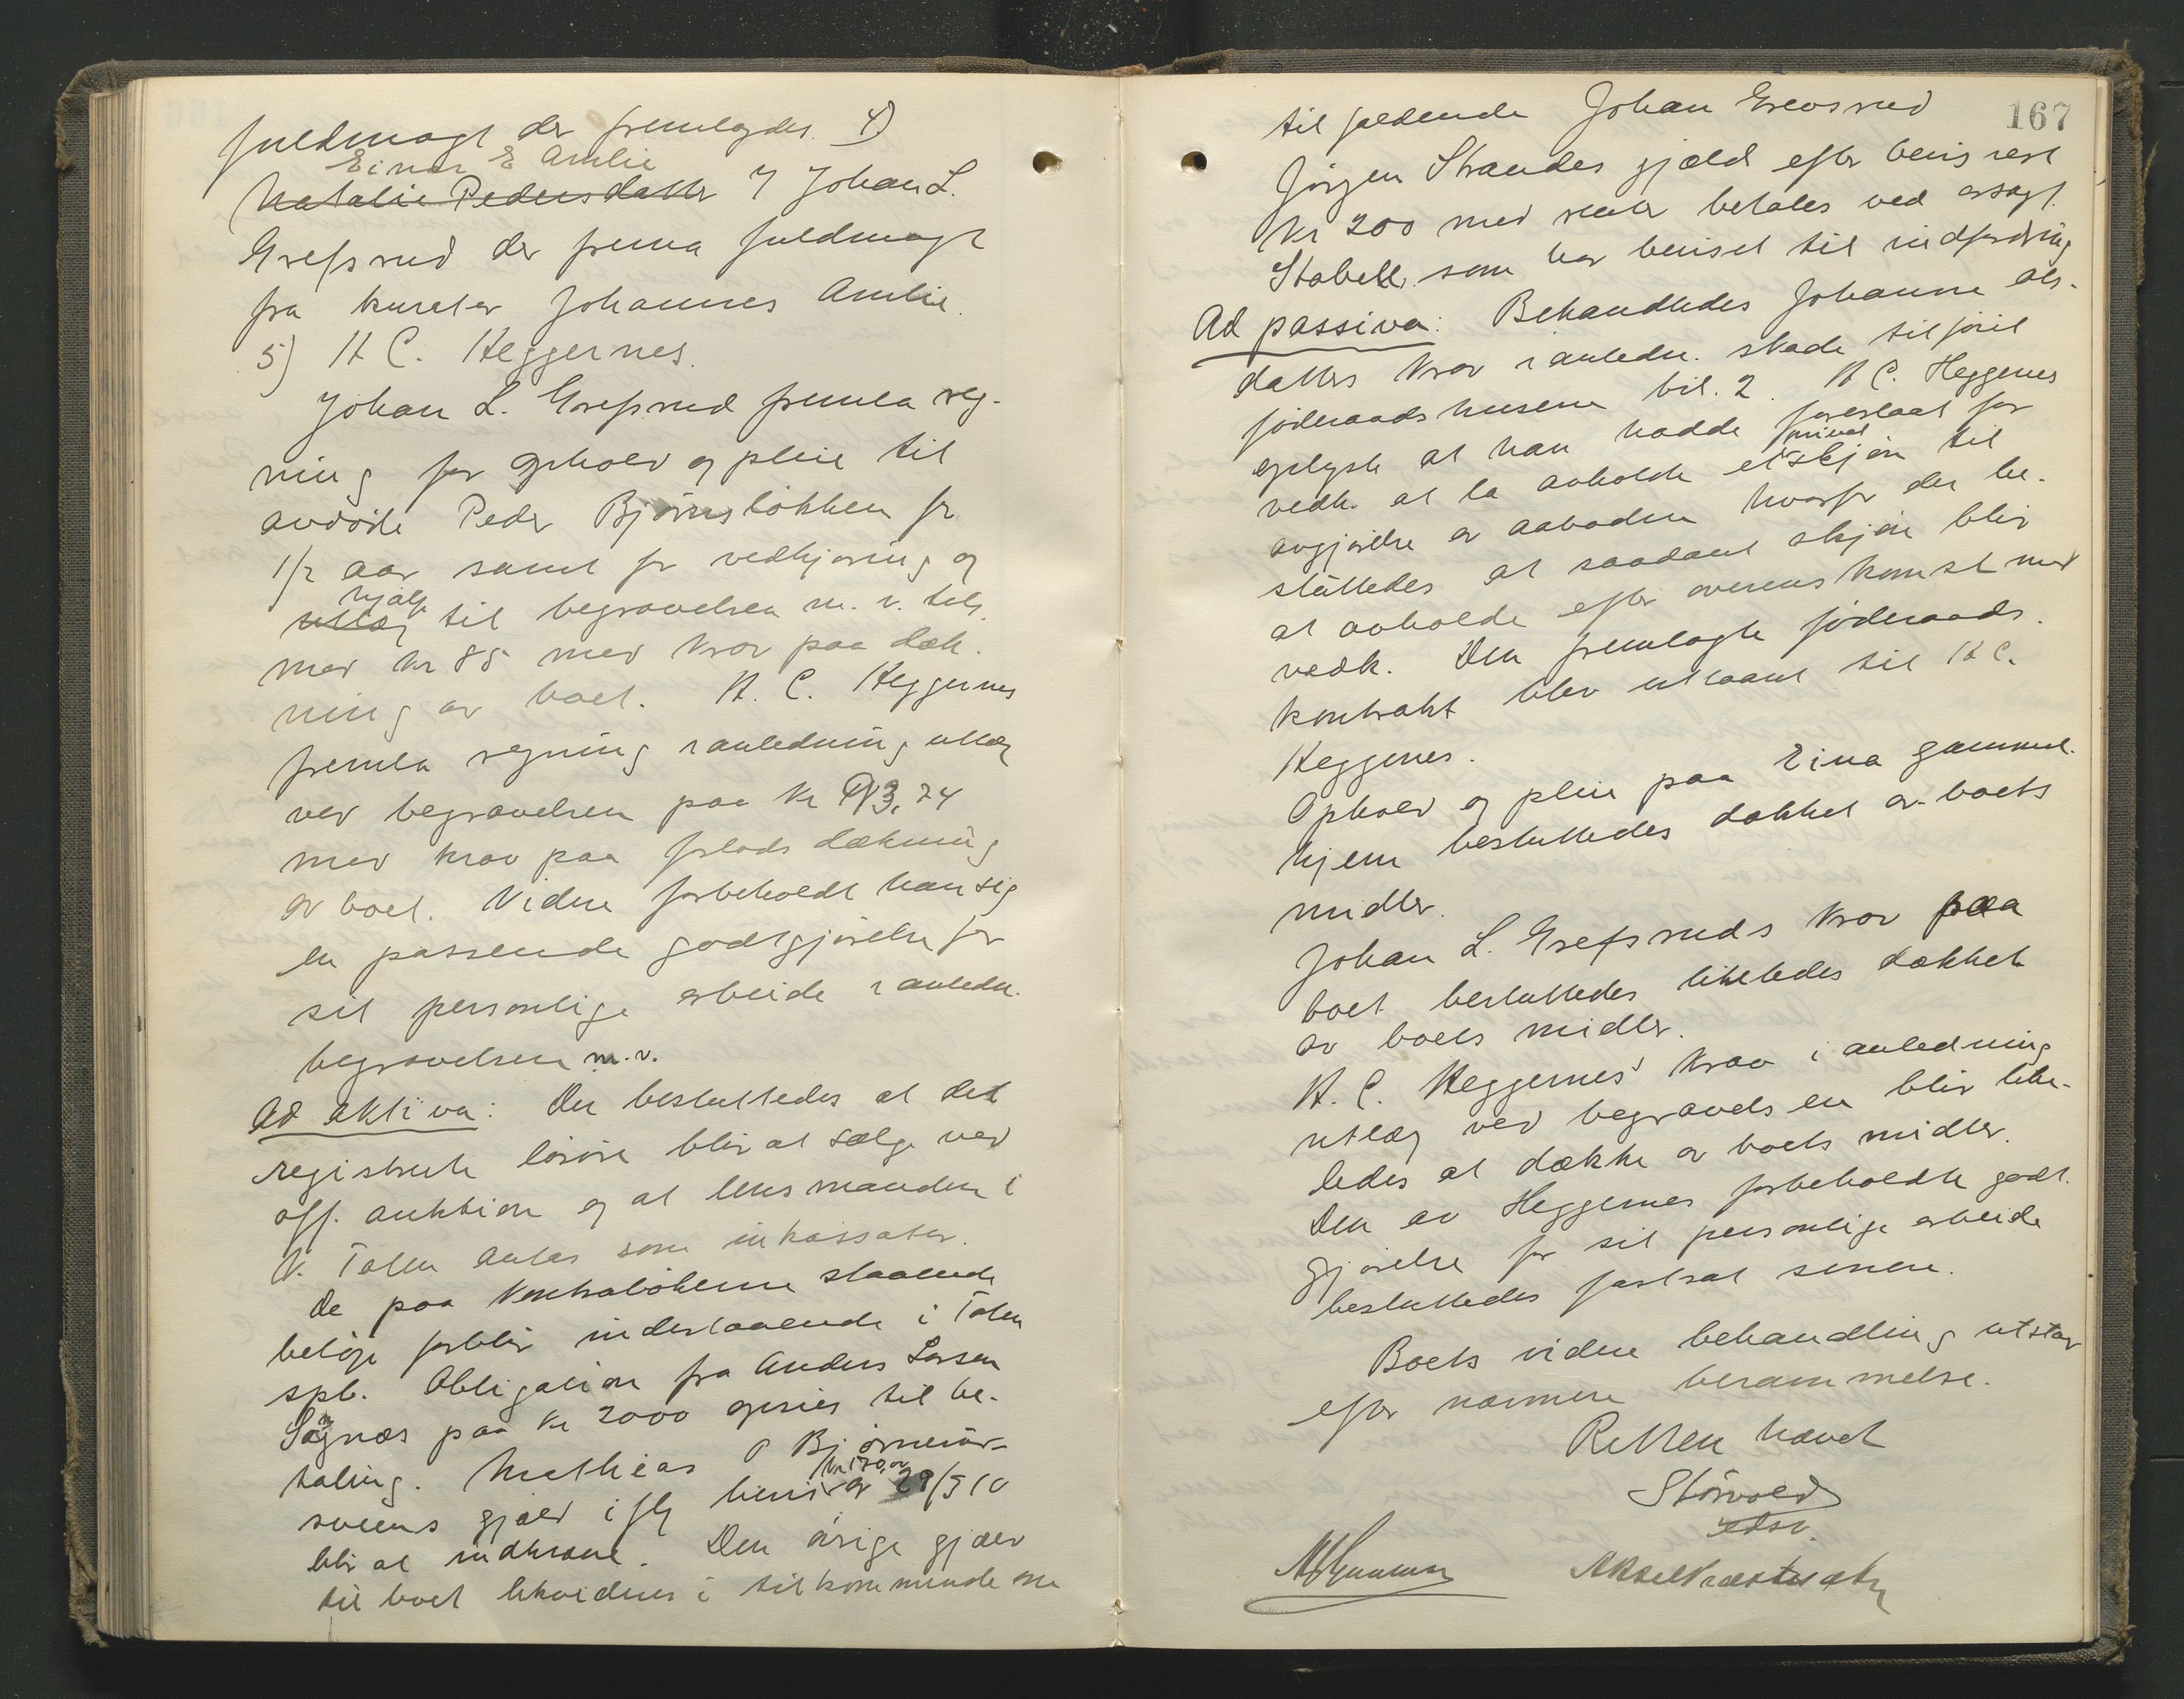 fuldmagt der fremlagdes. 4)
Einar E Amlie
Natalie Pedersdatter v Johan L.
Grefsrud der fremla fuldmagt
fra kurator Johannes Amlie.
5) H C. Heggernes.
Johan L. Grefsrud fremla reg-
ning for ophold og pleie til
avdöde Peder Björnslökken for
1/2 aar samt for vedkjöring og
hjælp
utlæg til begravelsen m. v. tils.
med kr 85 med krav paa dæk-
ning av boet. H. C. Heggernes
fremla regning i anledning utlæg
ved begravelsen paa kr 93,74
med krav paa forlods dækning
av boet. Videre forbeholdt han sig
en passende godtgjörelse for
sit personlige arbeide i anledn.
begravelsen m.v.
Ad aktiva: Der besluttedes at det
registrerte lösöre blir at sælge ved
off. auktion og at lensmanden i
V. Toten antas som inkassator.
De paa kontrabökerne staaende
belöp forblir indestaaende i Toten
spb. Obligation fra Anders Larsen
Sögnæs paa kr 2000 opsies til be-
taling. Mathias P Björnerör-
kr 170,00
sveens gjæld ifg bevis av 29/5 10
blir at indkræve. Den övrige gjæld
til boet likvideres i tilkommende om
167
til faldende Johan Grevsrud
Jörgen Strandes gjæld efter bevis rest
kr 200 med renter betales ved orsagf.
Stabell som har beviset til indfordring
Ad passiva: Behandledes Johanne ols-
datters krav i anledn. skade tilföiet
föderaadshusene bil. 2. H C. Heggenes
oplyste at han hadde foreslaat for
privat
vedk. at la avholde et skjön til
avgjörelse av aaboden hvorfor der be-
sluttedes at saadant skjön blir
at avholde efter overenskomst med
vedk. Den fremlagte föderaads-
kontrakt blev utlaant til H C.
Heggenes.
Ophold og pleie paa Eina gammel-
hjem besluttedes dækket av boets
midler.
Johan L. Grefsruds krav paa
boet besluttedes likeledes dækket
av boets midler.
H. C. Heggernes' krav i anledning
utlæg ved begravelsen blir like-
ledes at dække av boets midler.
Den av Heggernes forbeholdte godt-
gjörelse for sit personlige arbeide
besluttedes fastsat senere.
Boets videre behandling utstaar
efter nærmere berammelse.
Retten hævet
Störvold
edsv.